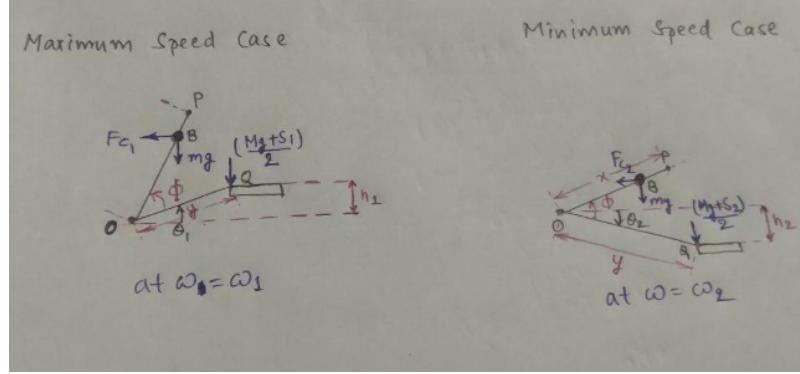 Maximum Speed Case
P
Fc1
B
mg
(Mg+S1)
2
Q
ϕ
y
θ1
h1
O
at ω=ω1
Minimum Speed Case
Fc2
P
x
B
mg
(Mg+S2)
2
ϕ
θ2
h2
O
Q1
y
at ω=ω2